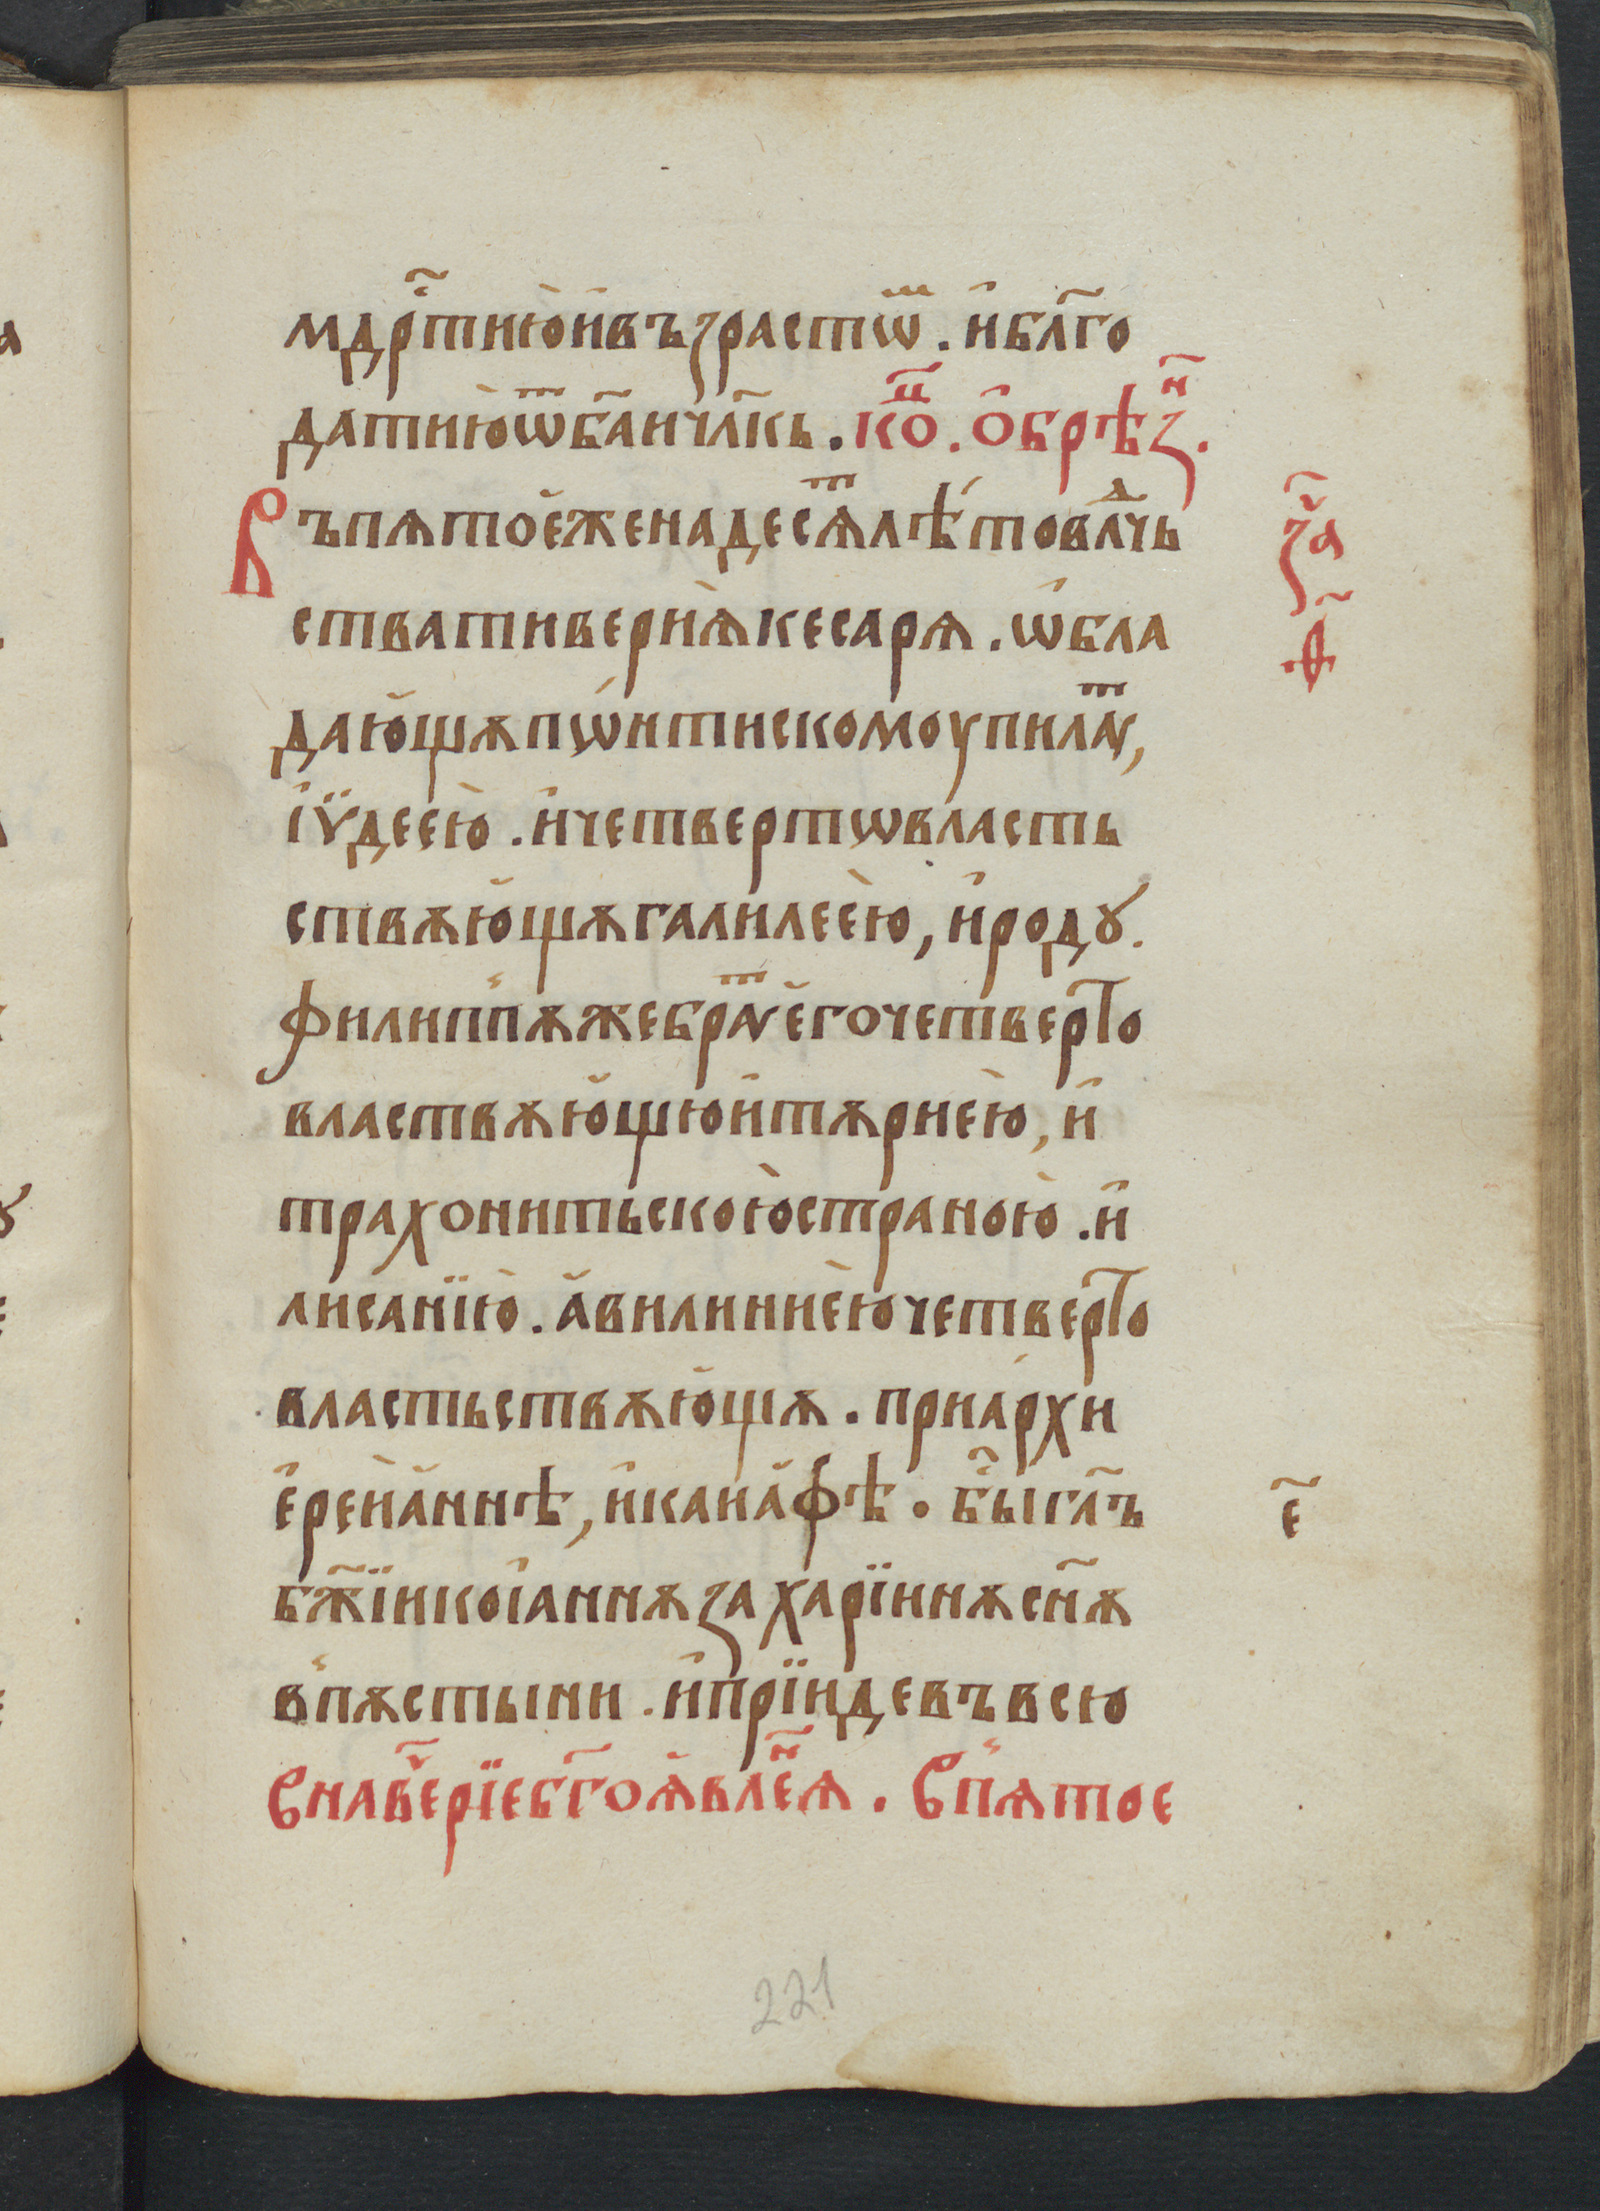 мдрⷭ҇тиюⷡ и҆въꙁрастѿ . и҆бл҃го
датию̀ѿб҃аичл҃кь . кⷪ҇ц . о҆брѣꙁⷩ҇ .
Въпѧтоеженадесѧⷮлѣ́товлⷣчь
ствативерїѧкесарѧ . ѡ҆бла
даю̆щѫпѡ́нтискомоупилаⷮꙋ,
і҆ѵ̈дееѐю . и҆четвертѡвласть
ствѫю̆щѫгалилеѐю, и҆родꙋ .
филипⸯпѫжебраⷮꙋе҆гочетверⷮо
властвѫю̆щюи҆тѫриѐю, и҆
трахонитьскою̀страною̀ . и҆
лисанїю̀ . а҆вилиниѐючетверⷮо
властьствѫю̆щѫ . приа́рхи
е҆реи҆а҆ннѣ, и҆каиа҆фѣ . бⷭ҇ыгл҃ъ
бж҃їикоі҆аннѫꙁахарїинѫсн҃ѫ
вⸯпѫстыни . и҆прїидевъвсю
Внавⷱ҇ерїебг҃оѧ҆влеⷩ҇ѧ . Вⸯпѧтое
ꙁаⷱ҇
.ф҃.
е҃
221